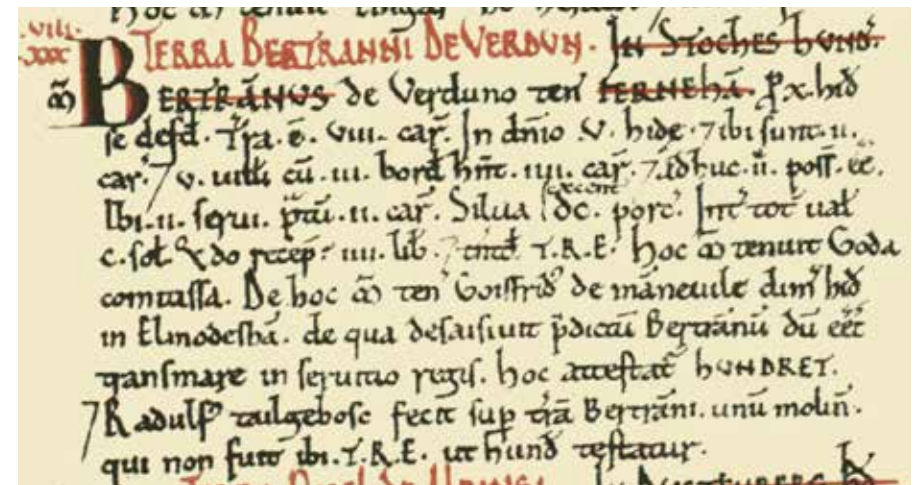 .VIII.
XXXC TERRA BERTRANNI DE VERDUN. IN STOCHES HUND'.
M BERTRANUS de Verduno ten FERNEHA. p x. hid
se defd. Tra. e. VIII. car. In dnio V. hide. 7 ibi sunt. ii.
car. 7 v. uilli cu. iii. bord hnt. iiii. car. 7 adhuc. ii. poss. ee.
Ibi. ii. serui. ptu. ii. car. Silua dc. porc. Int tot ual
c. sol. Qdo recep: iiii. lib. T.R.E. hoc M tenuit Goda
comitassa. De hoc M ten Goisfrid de maneuile dim hid
in Elmodesha. de qua desaisiuit pdictu Bertranu du eet
transmare in seruitio regis. hoc attestat HUNDRET.
7 Radulf tailgebosc fecit sup tra Bertrani. unu molin.
qui non fuit ibi. T.R.E. ut hund testatur.